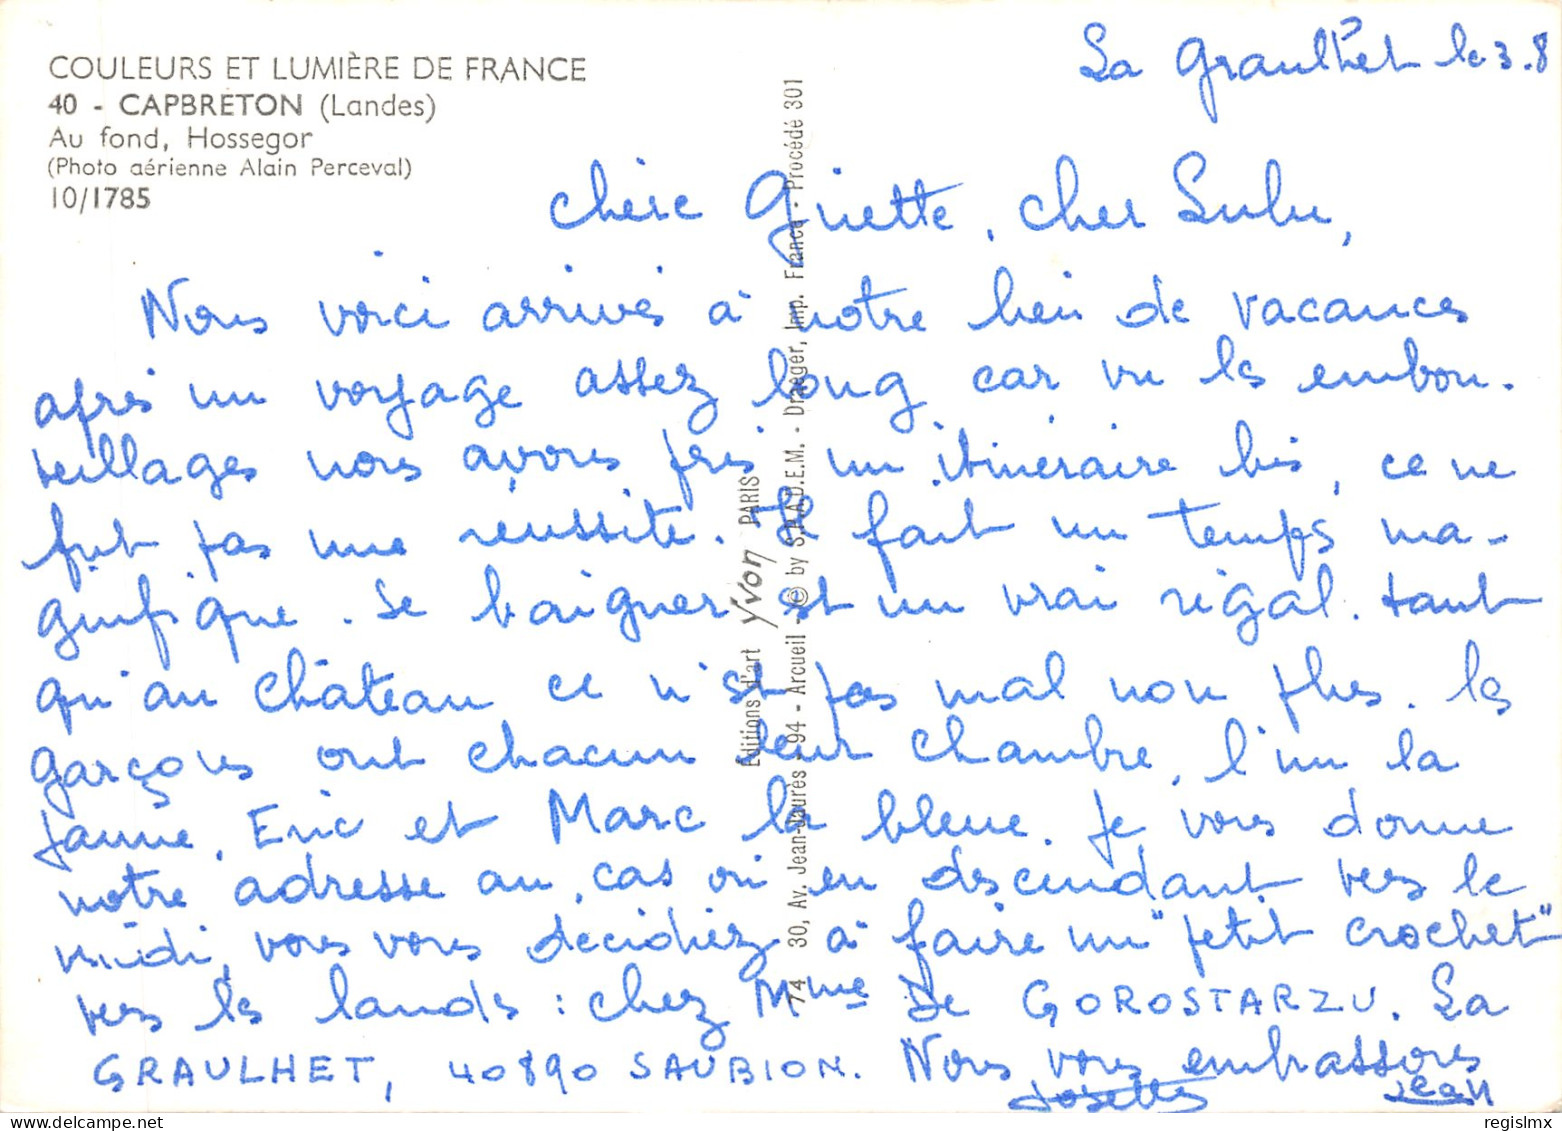 COULEURS ET LUMIÈRE DE FRANCE
40 - CAPBRETON (Landes)
Au fond, Hossegor
(Photo aérienne Alain Perceval)
10/1785
La Graulhet le 3.8
Chère Ginette, cher Lulu,
Nous voici arrivés à notre lieu de vacances
après un voyage assez long car vu les embou-
teillages nous avons pris un itinéraire bis, ce ne
fut pas une réussite. Il fait un temps ma-
gnifique. Se baigner est un vrai régal. tant
qu'au château ce n'est pas mal non plus. les
garçons ont chacun leur chambre, l'un la
jaune, Eric et Marc la bleue. Je vous donne
notre adresse au cas où en descendant vers le
midi, vous vous décidiez à faire un "petit crochet"
vers les landes : chez Mme De GOROSTARZU. La
GRAULHET, 40890 SAUBION. Nous vous embrassons
Josette Jean
Editions d'art Yvon PARIS
74 30, Av. Jean-Jaurès - 94 - Arcueil - © by S.P.A.D.E.M. - Draeger, Imp. France - Procédé 301
delcampe.net
regislmx